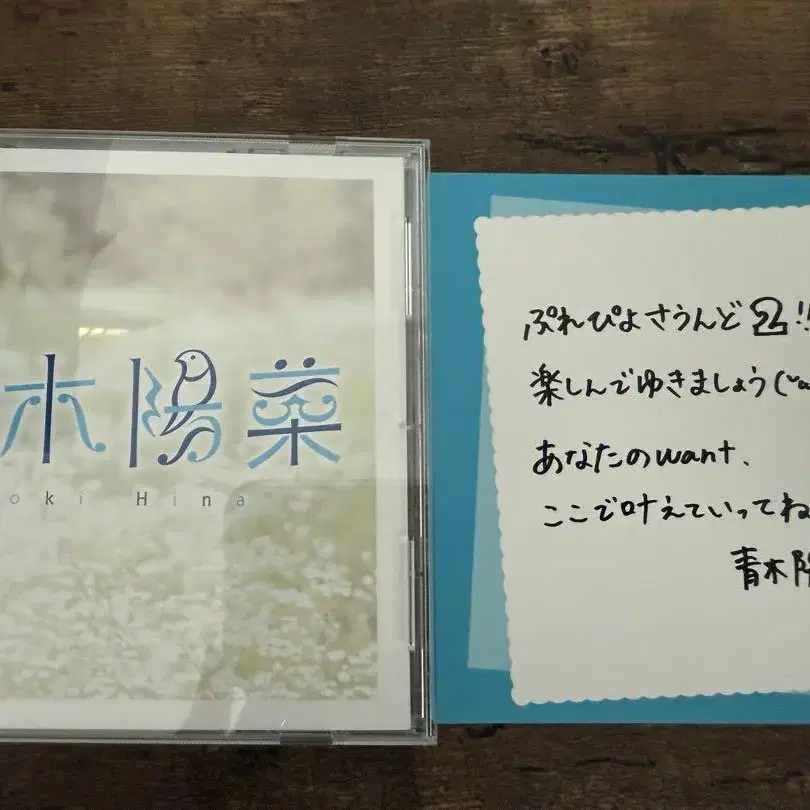 木陽菜
oki Hina
ぷれぴよさうんど2!!
楽しんでゆきましょう
あなたのwant、
ここで叶えていってね
青木陽